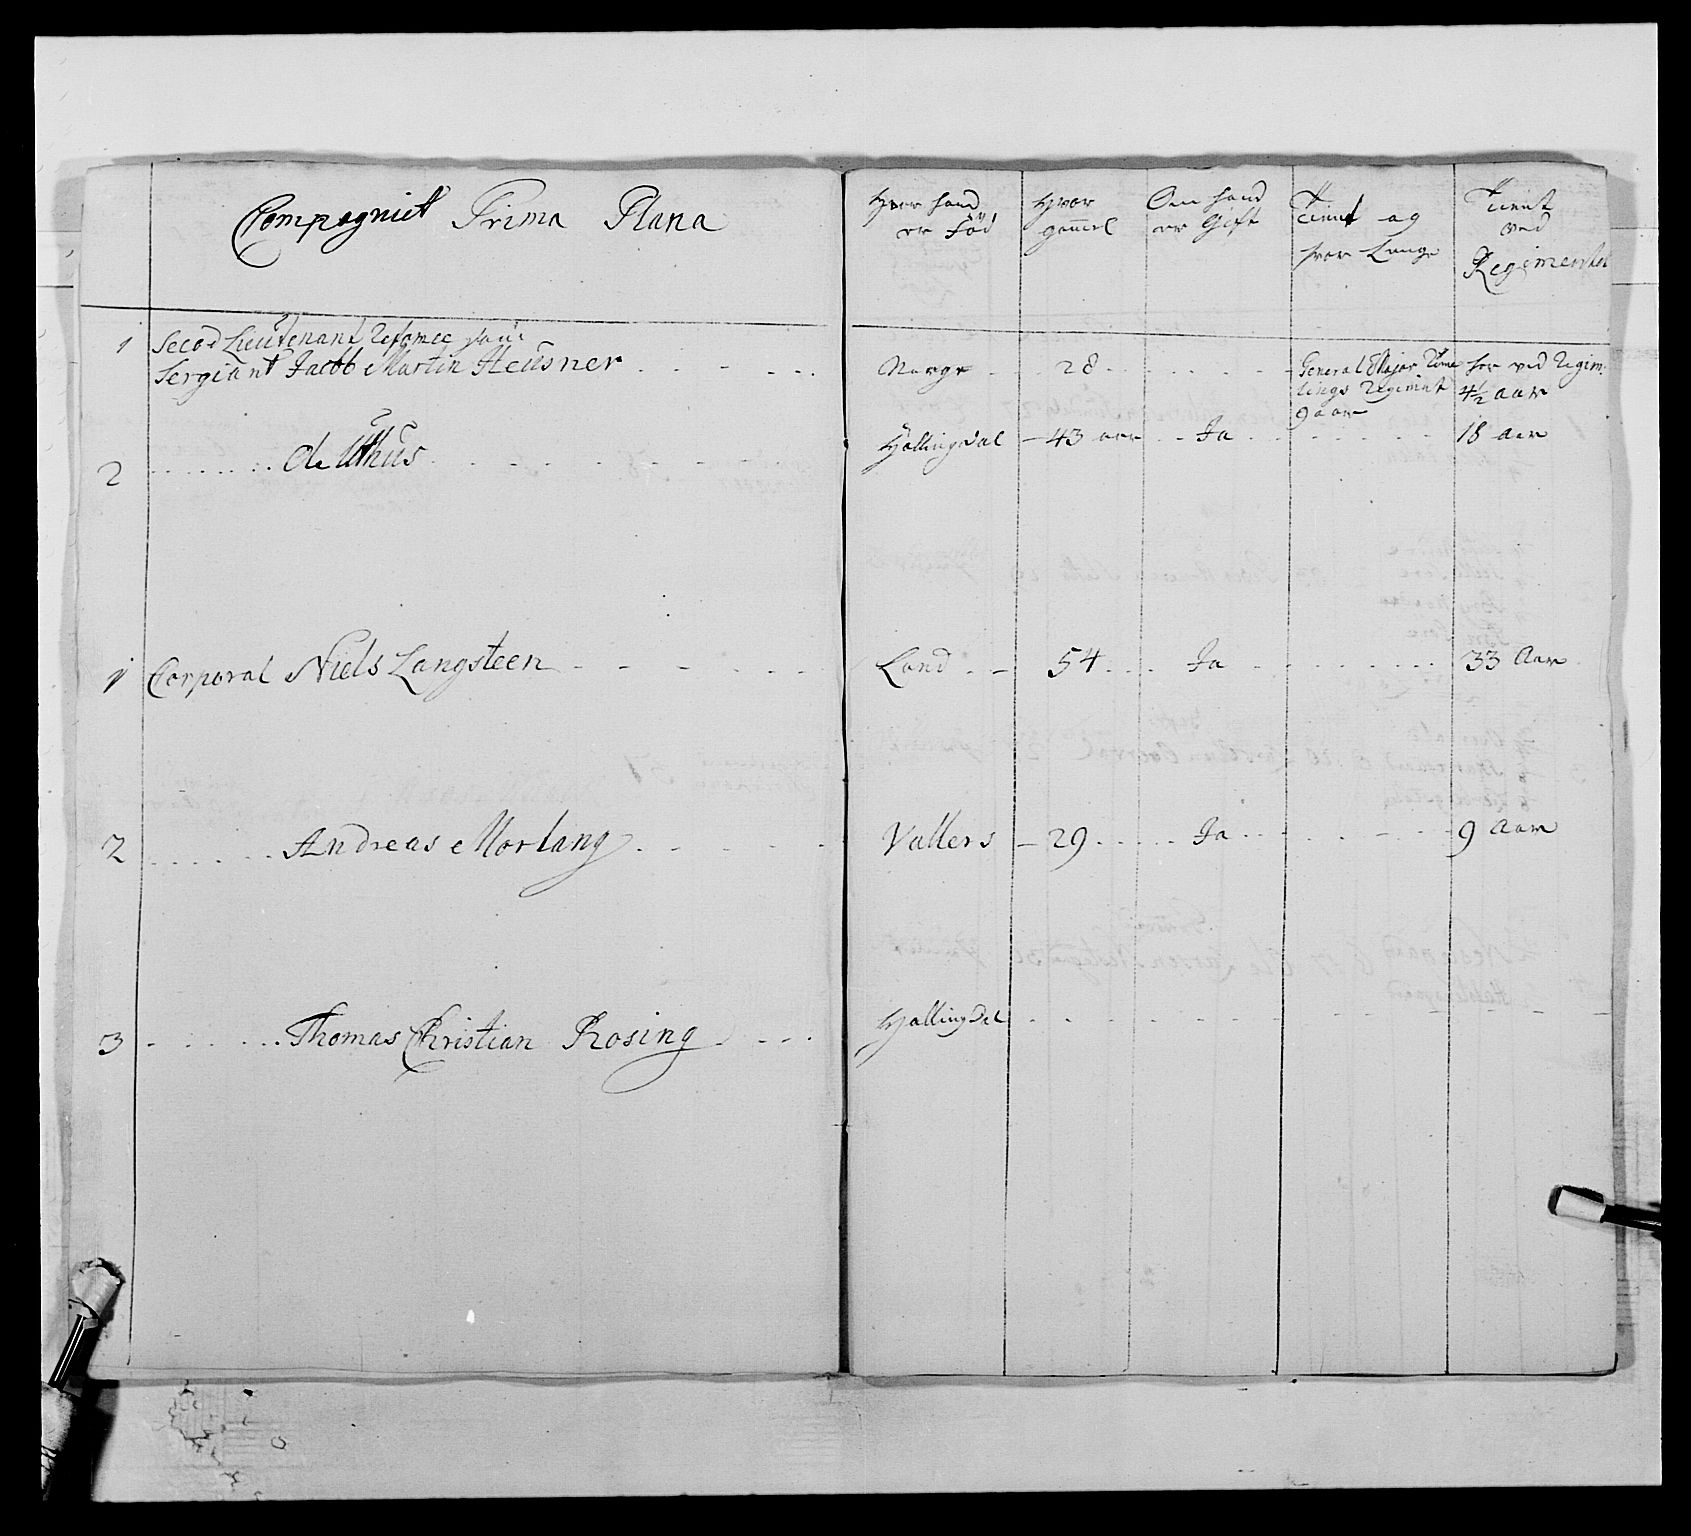 Compagniet Prima Plana
Hvor hand er Föd
Hvor gammel
Om hand er Gift
Tient og hvor Lenge
Tient ved Regimentet
1 Secod Lieutenant Refomee
Sergiant Jacob Martin Heüsner
Norge 28 General Major
Regiment 9 aar
her ved Regim: 4½ aar
2 de Uthüs Hallingdal 43 aar Ja 18 aar
1 Corporal Niels Langsteen Land 54 Ja 33 Aar
2 Andreas Morlang Vallers 29 Ja 9 Aar
3 Thomas Christian Rosing Hallingdal